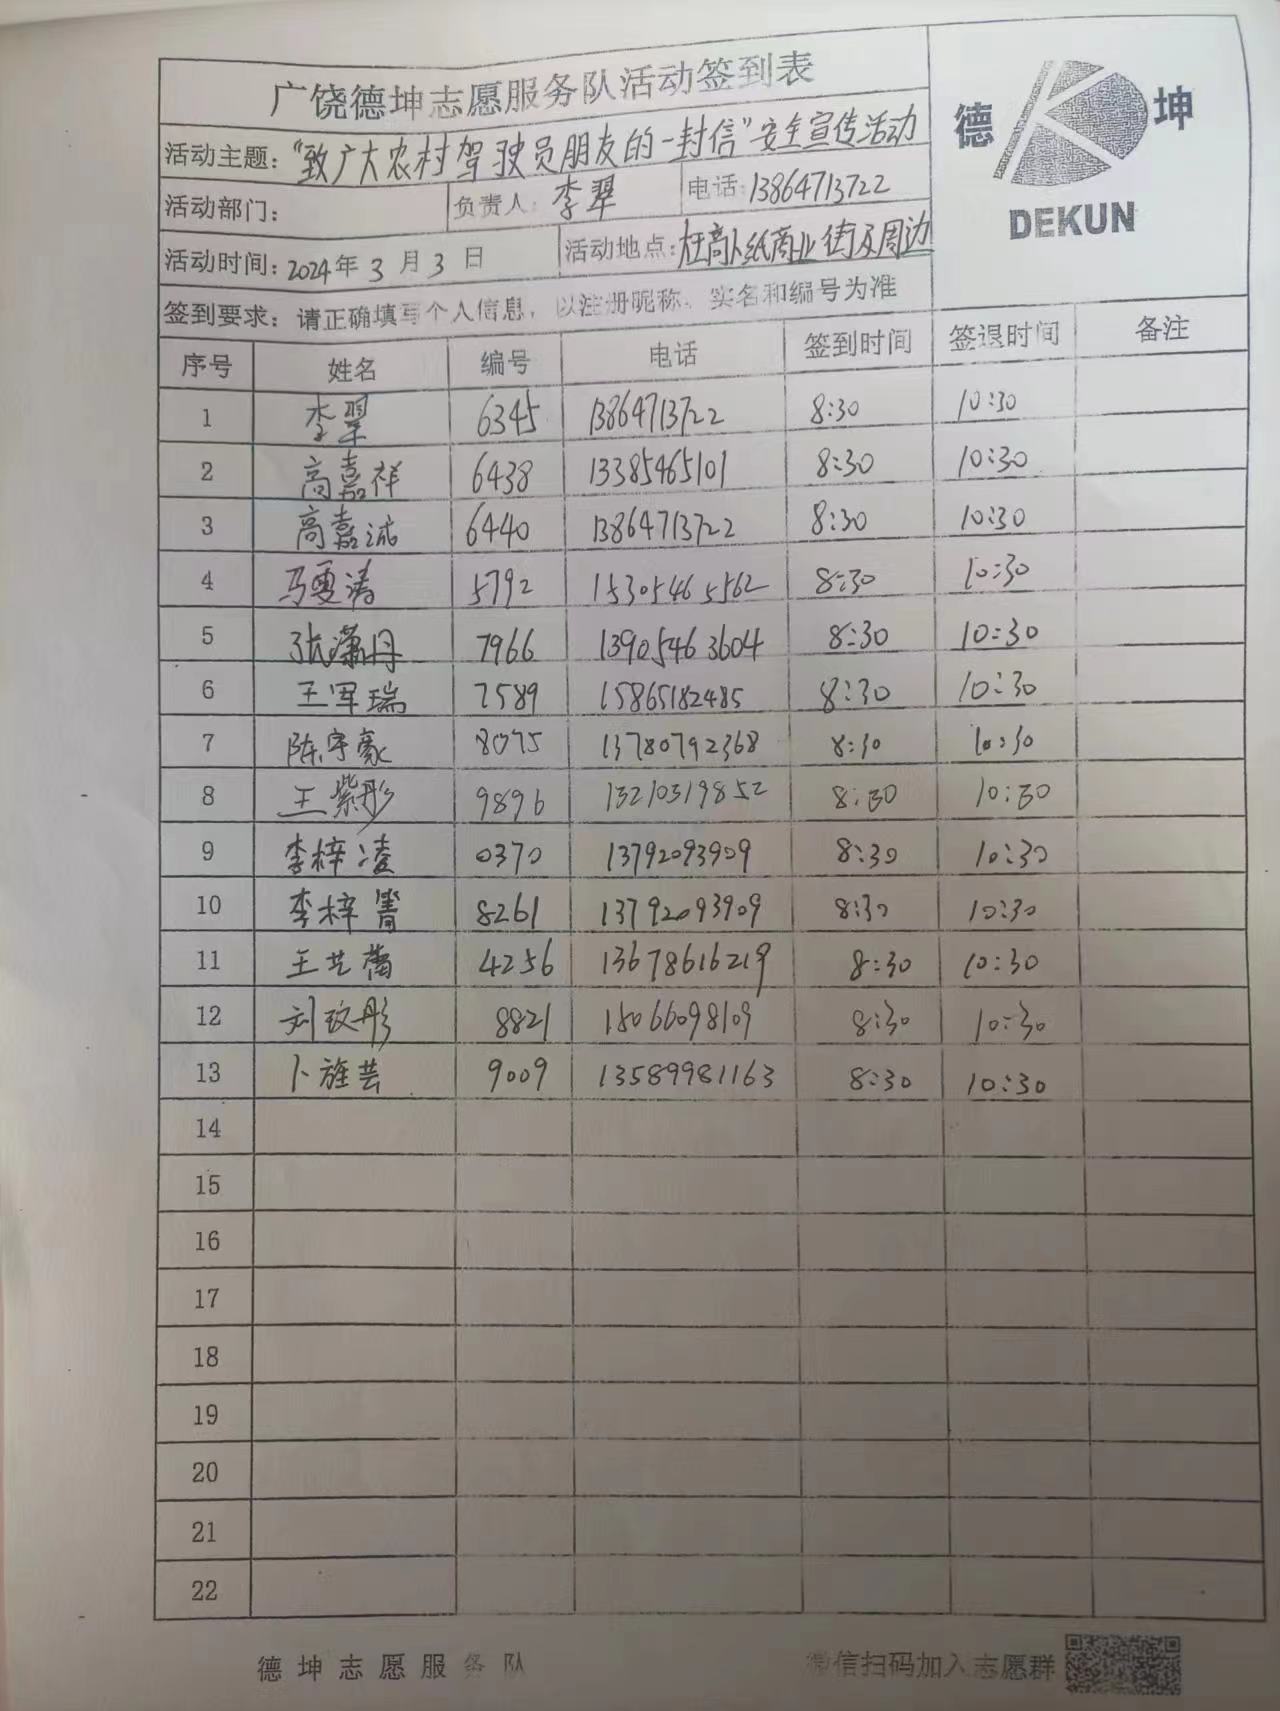 广饶德坤志愿服务队活动签到表
德 坤
DEKUN
活动主题：“致广大农村驾驶员朋友的一封信”安全宣传活动
活动部门： 负责人：李翠 电话：13864713722
活动时间：2024年3月3日 活动地点：商业街及周边
签到要求：请正确填写个人信息，以注册昵称、实名和编号为准
序号 姓名 编号 电话 签到时间 签退时间 备注
1 李翠 6345 13864713722 8:30 10:30
2 高嘉祥 6438 13385465101 8:30 10:30
3 高嘉诚 6440 13864713722 8:30 10:30
4 马雯涛 5792 15305465562 8:30 10:30
5 张潇丹 7966 13905463604 8:30 10:30
6 王军瑞 7589 15865182485 8:30 10:30
7 陈宇豪 8075 13780792368 8:30 10:30
8 王紫彤 9896 13210319852 8:30 10:30
9 李梓凌 0370 13792093909 8:30 10:30
10 李梓箐 8261 13792093909 8:30 10:30
11 王艺 4256 13678616219 8:30 10:30
12 刘玟彤 8821 15066098109 8:30 10:30
13 卜旌芸 9009 13589981163 8:30 10:30
14
15
16
17
18
19
20
21
22
德坤志愿服务队 微信扫码加入志愿群